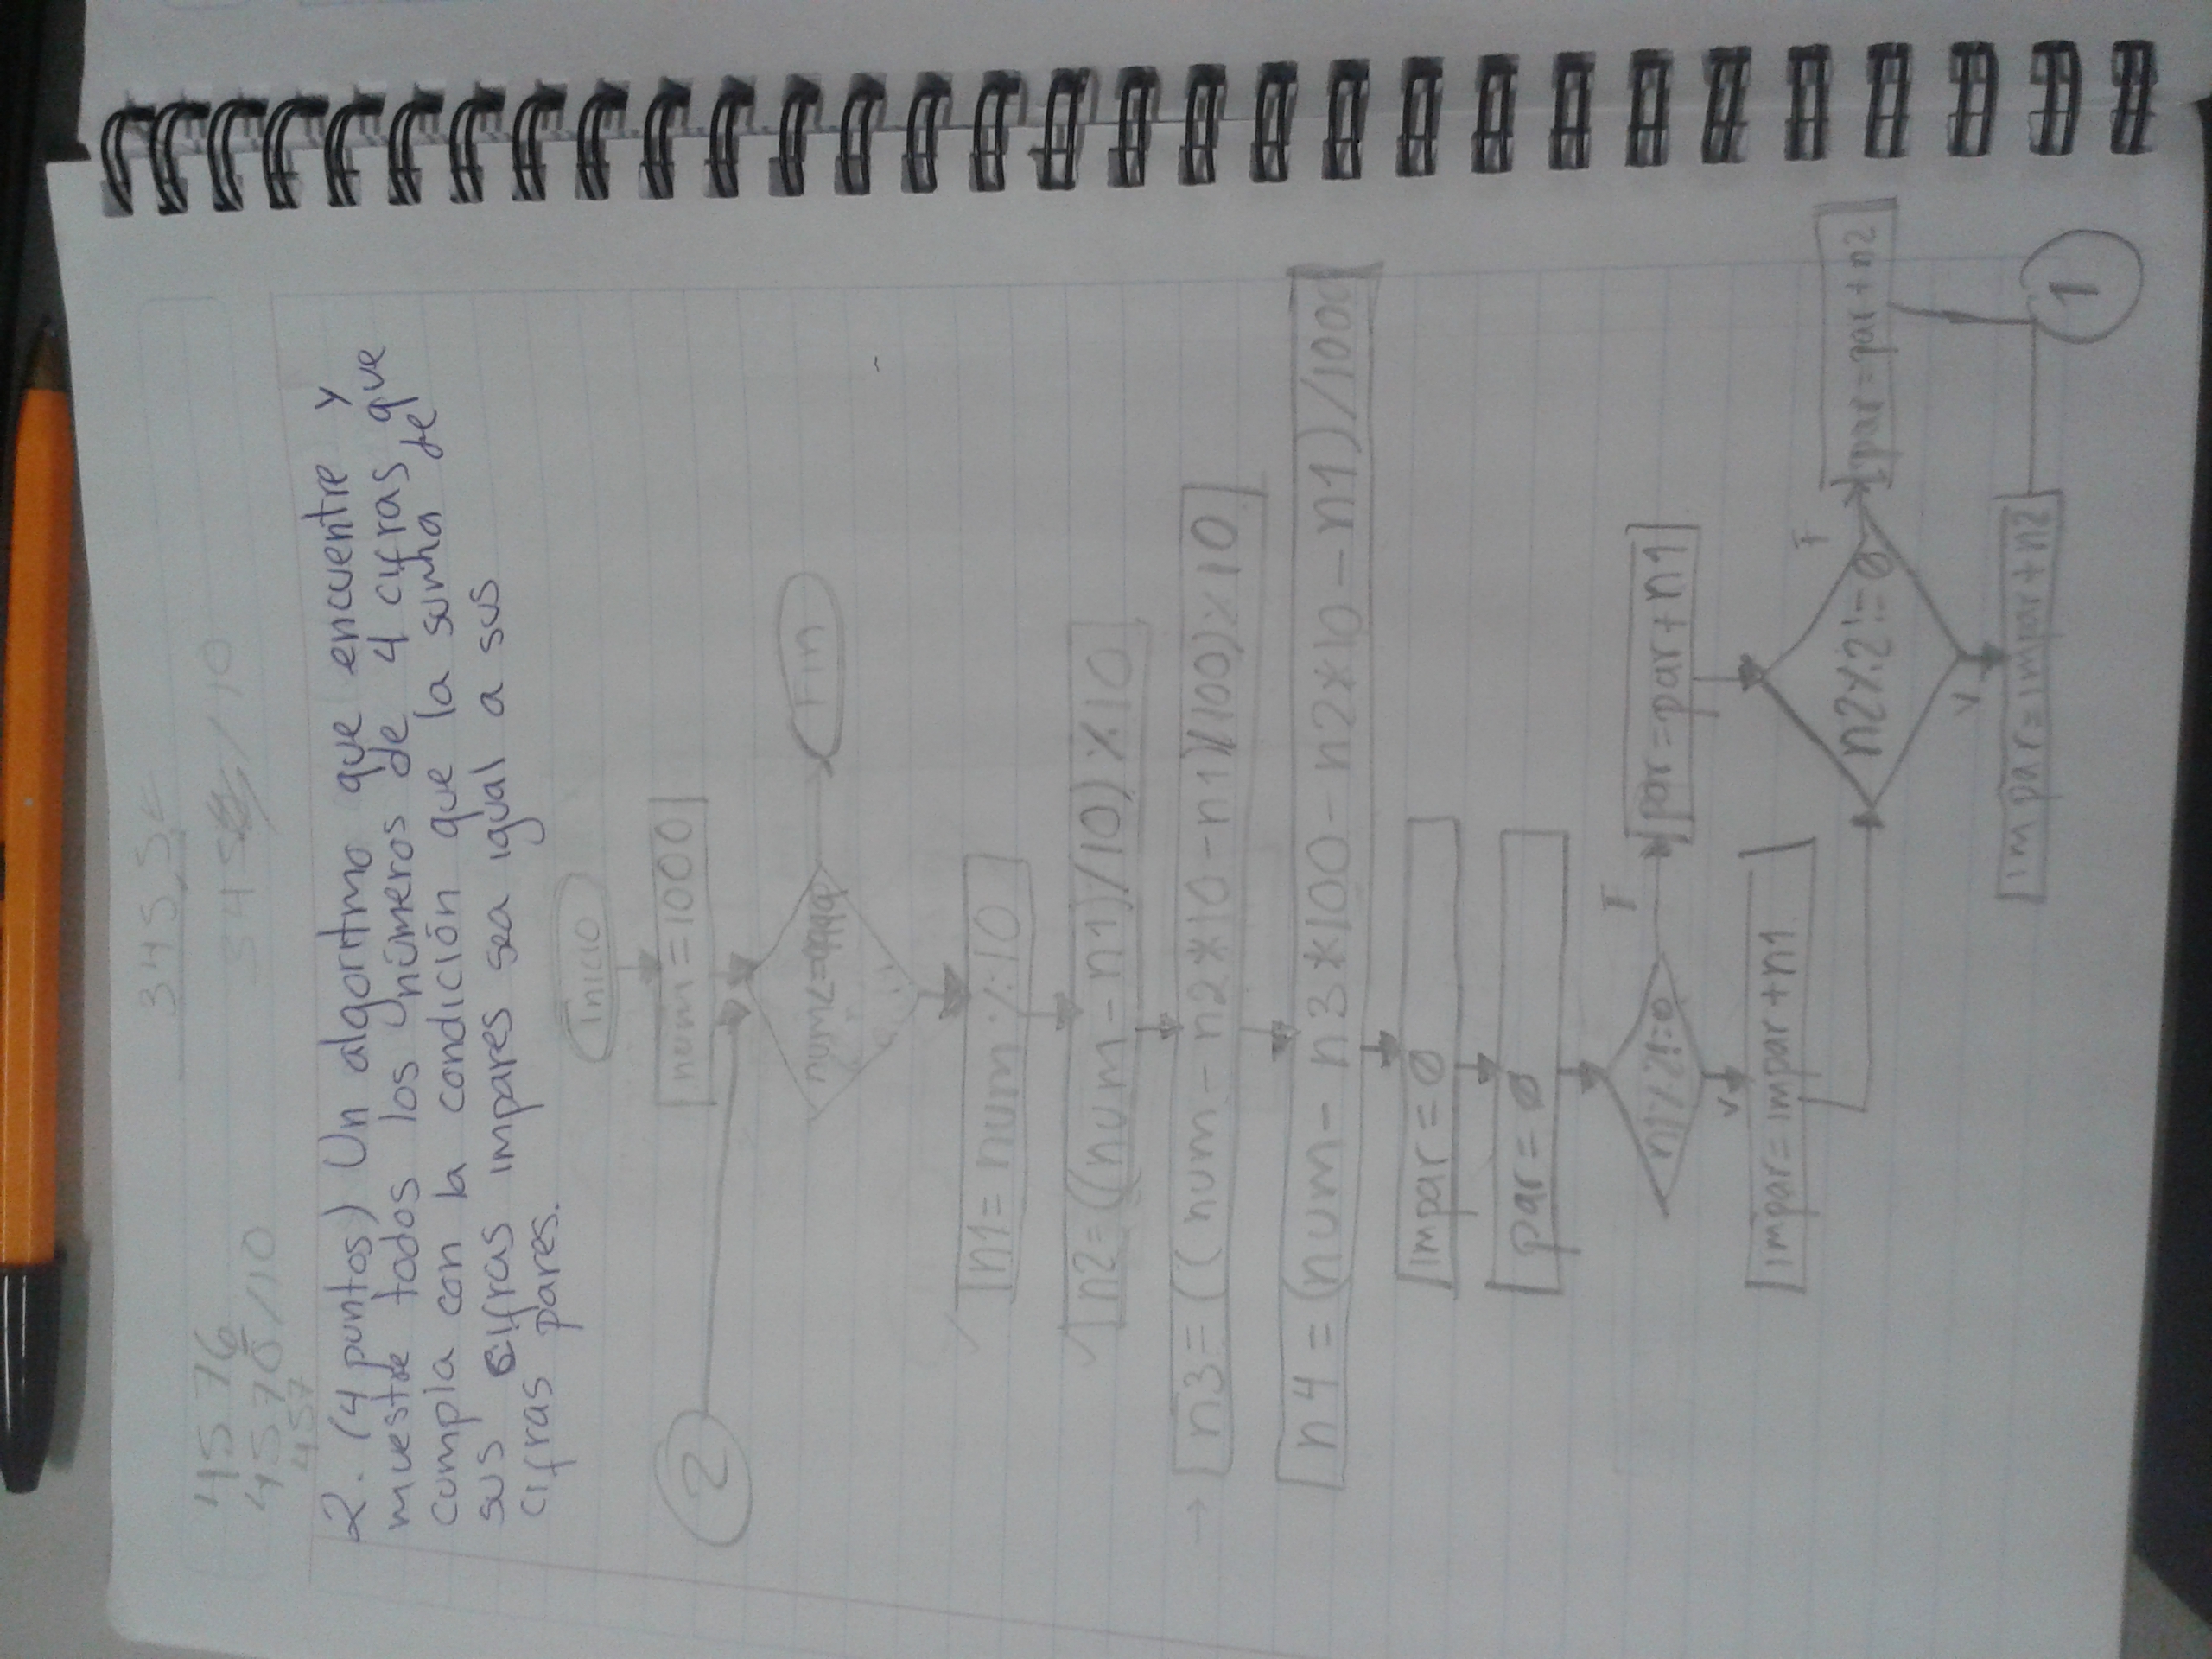 4576
4570/10
457
345,5
345 / 10
2. (4 puntos) Un algoritmo que encuentre y
muestre todos los números de 4 cifras que
cumpla con la condición que la sumha de
sus cifras impares sea igual a sus
cifras pares.
Inicio
2
num=1000
num<=9999
Fin
n1= num % 10
n2=((num-n1)/10)%10
→ n3=((num-n2*10-n1)/100)%10
n4=(num-n3*100-n2*10-n1)/1000
impar=0
par=0
n1%2!=0
F
par=par+n1
V
impar=impar+n1
n2%2!=0
F
par=par+n2
V
impar=impar+n2
1